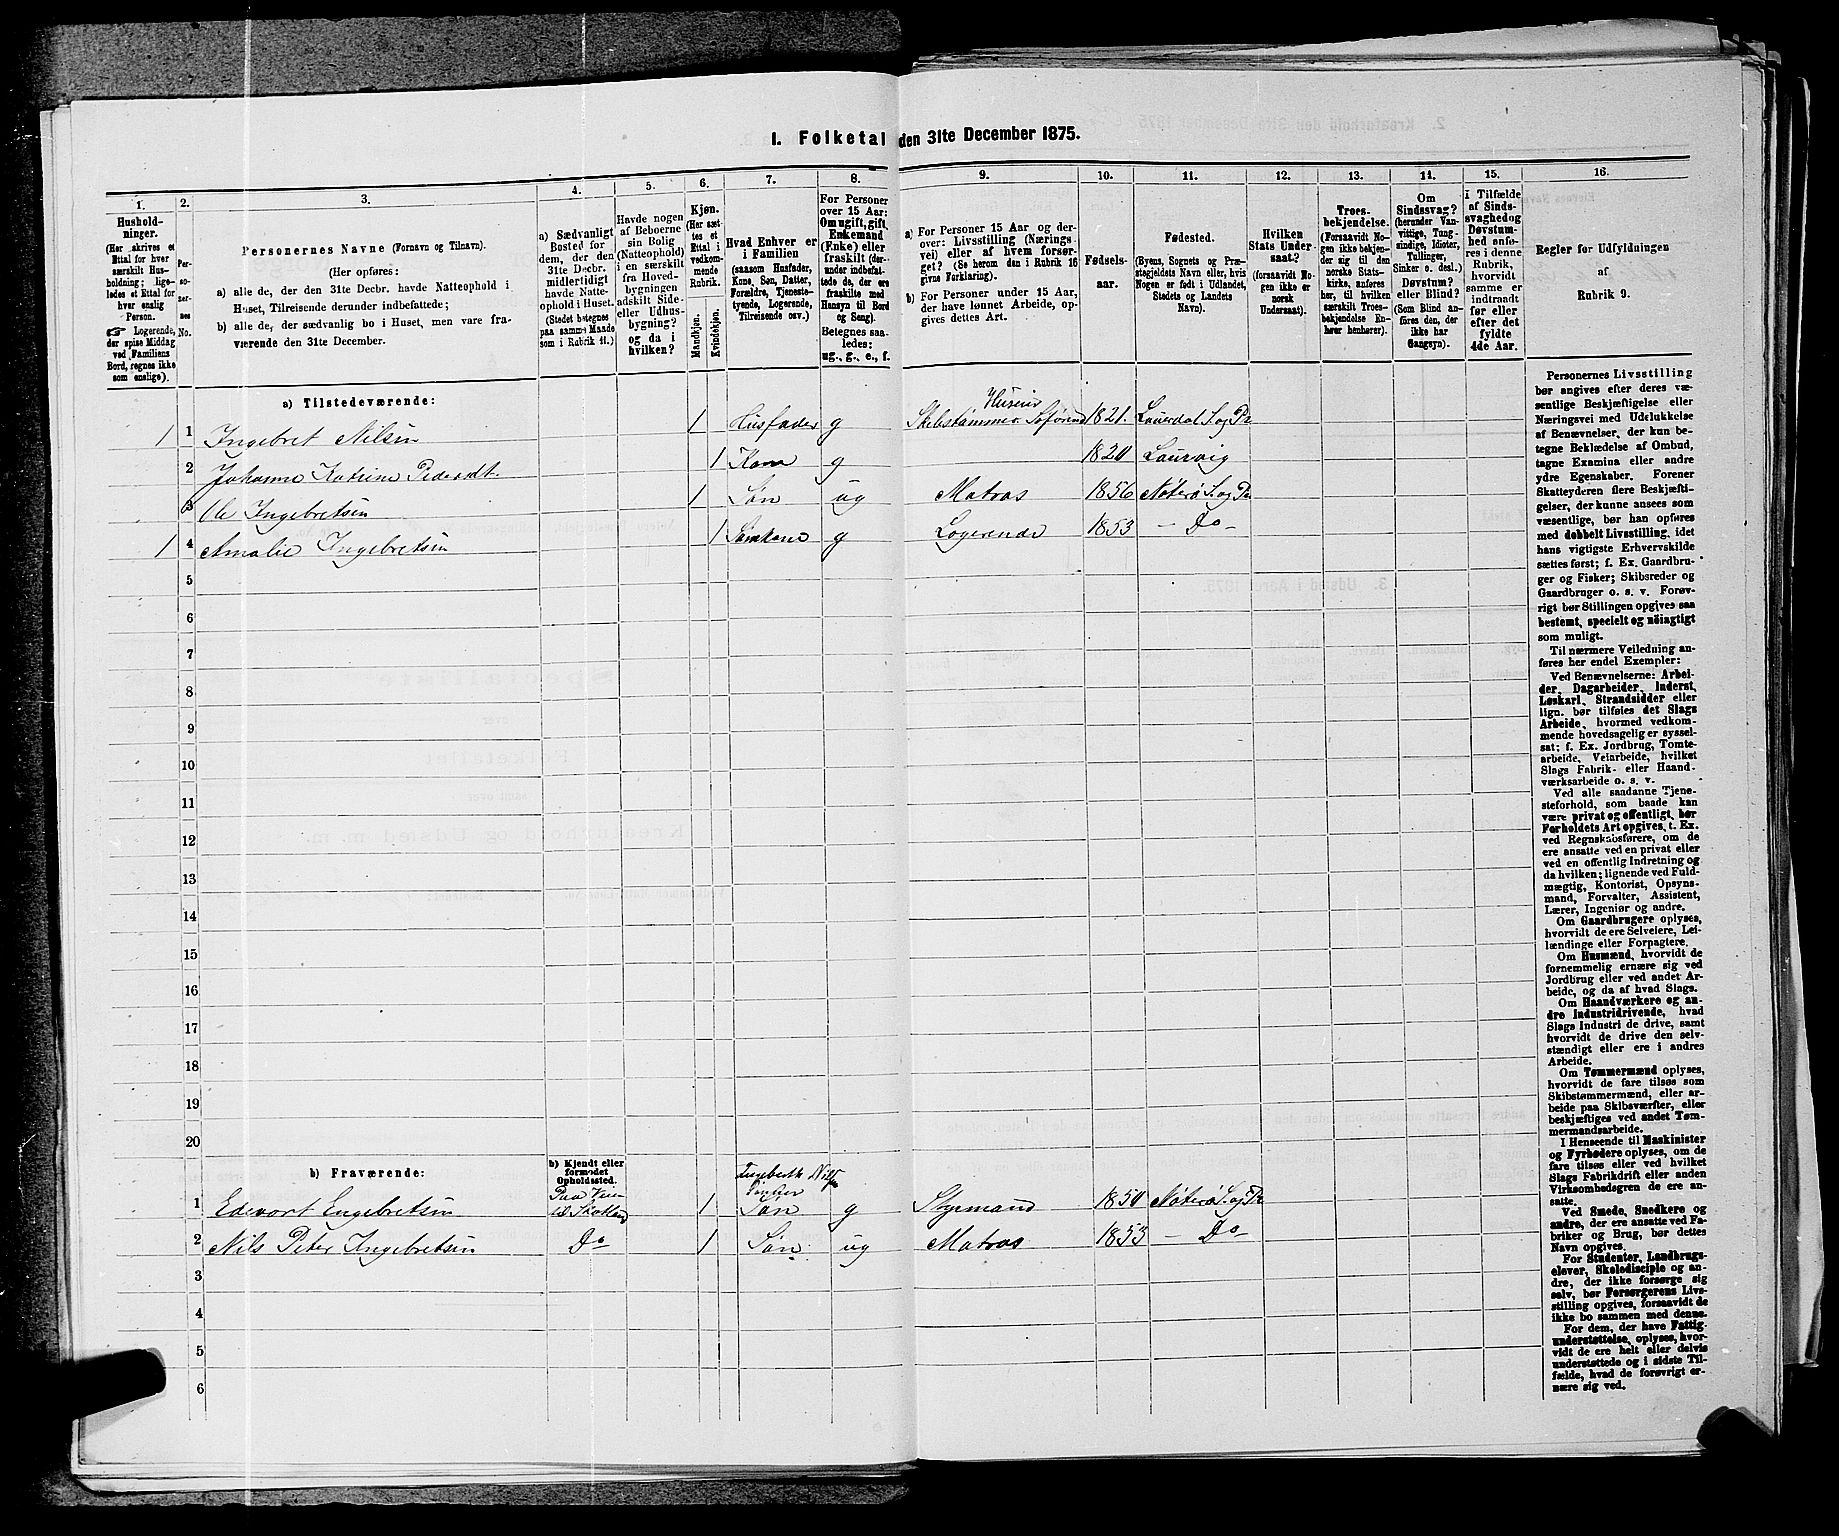 1. Folketal den 31te December 1875.
1. 2. 3. 4. 5. 6. 7. 8. 9. 10. 11. 12. 13. 14. 15. 16.
Hushold-
ninger.
(Her skrives et
Ettal for hver
særskilt Hus-
holdning; lige-
ledes et Ettal for
hver enslig
Person.
☞ Logerende,
der spise Middag
ved Familiens
Bord, regnes ikke
som enslige).
Per-
so-
ner-
nes
No.
Personernes Navne (Fornavn og Tilnavn).
(Her opføres:
a) alle de, der den 31te Decbr. havde Natteophold i
Huset, Tilreisende derunder indbefattede;
b) alle de, der sædvanlig bo i Huset, men vare fra-
værende den 31te December.
a) Sædvanligt
Bosted for
dem, der den
31te Decbr.
midlertidigt
havde Natte-
ophold i Huset.
(Stedet betegnes
paa samme Maade
som i Rubrik 11.)
Havde nogen
af Beboerne
sin Bolig
(Natteophold)
i en særskilt
fra Hoved-
bygningen
adskilt Side-
eller Udhus-
bygning?
og da i
hvilken?
Kjøn.
(Her sæt-
tes et
Ettal i
vedkom-
mende
Rubrik.
Mandkjøn.
Kvindekjøn.
Hvad Enhver er
i Familien
(saasom Husfader,
Kone, Søn, Datter,
Forældre, Tjeneste-
tyende, Logerende,
Tilreisende osv.)
For Personer
over 15 Aar:
Om ugift, gift,
Enkemand
(Enke) eller
fraskilt (der-
under indbefat-
tede de, der ere
fraskilte med
Hensyn til Bord
og Seng).
Betegnes saa-
ledes:
ug., g., e., f.
a) For Personer 15 Aar og der-
over: Livsstilling (Nærings-
vei) eller af hvem forsør-
get? (Se herom den i Rubrik 16
givne Forklaring).
b) For Personer under 15 Aar,
der have lønnet Arbeide, op-
gives dettes Art.
Fødsels-
aar.
Fødested.
(Byens, Sognets og Præ-
stegjeldets Navn eller, hvis
Nogen er født i Udlandet,
Stedets og Landets
Navn).
Hvilken
Stats Under-
saat?
(forsaavidt No-
gen ikke er
norsk
Undersaat).
Troes-
bekjendelse.
(Forsaavidt No-
gen ikke bekjen-
der sig til den
norske Stats-
kirke, anføres
her, til hvilken
særskilt Troes-
bekjendelse En-
hver henhører).
Om
Sindssvag?
(herunder Van-
vittige, Tung-
sindige, Idioter,
Tullinger,
Sinker o. desl.)
Døvstum?
eller Blind?
(Som Blind an-
føres den, der
ikke har
Gangsyn).
i Tilfælde
af Sinds-
svaghed og
Døvstum-
hed anfø-
res i denne
Rubrik,
hvorvidt
samme er
indtraadt
før eller
efter det
fyldte
4de Aar.
Regler for Udfyldningen
af
Rubrik 9.
a) Tilstedeværende:
1 1 Ingebret Nilsen 1 Husfader g Skibstømmer. Huseier 1821. Laurdal S. og Pr
2 Johanne Katrine Pedersdt. 1 Kone g 1820 Laurvig
3 Ole Ingebretsen 1 Søn ug Matros 1856 Nøterø S. og Pr
1 4 Amalie Ingebretsen 1 g Logerende 1853 — Do —
5
6
7
8
9
10
11
12
13
14
15
16
17
18
19
20
b) Fraværende:
b) Kjendt eller
formodet
Opholdssted.
1 Edevort Engebretsen Paa Veien til Skotland 1 Søn g Styrmand 1850 Nøterø S. og Pr
2 Nils Peter Ingebretsen Do 1 Søn ug Matros 1853 — Do —
3
4
5
6
Personernes Livsstilling
bør angives efter deres væ-
sentlige Beskjæftigelse eller
Næringsvei med Udelukkelse
af Benævnelser, der kun be-
tegne Beklædelse af Ombud,
tagne Examina eller andre
ydre Egenskaber. Forener
Skatteyderen flere Beskjæfti-
gelser, der kunne ansees som
væsentlige, bør han opføres
med dobbelt Livsstilling, idet
hans vigtigste Erhvervskilde
sættes først; f. Ex. Gaardbru-
ger og Fisker; Skibsreder og
Gaardbruger o. s. v. Forøv-
rigt bør Stillingen opgives saa
bestemt, specielt og nøiagtigt
som muligt.
Til nærmere Veiledning an-
føres her endel Exempler:
Ved Benævnelserne: Arbei-
der, Dagarbeider, Inderst,
Løskarl, Strandsidder eller
lign. bør tilføies det Slags
Arbeide, hvormed vedkom-
mende hovedsagelig er syssel-
sat; f. Ex. Jordbrug, Tomte-
arbeide, Veiarbeide, hvilket
Slags Fabrik- eller Haand-
værksarbeide o. s. v.
Ved alle saadanne Tjene-
steforhold, som baade kan
være privat og offentligt, bør
Forholdets Art opgives, t. Ex.
ved Regnskabsførere, om de
ere ansatte ved en privat eller
ved en offentlig Indretning og
da hvilken; lignende ved Fuld-
mægtig, Kontorist, Opsyns-
mand, Forvalter, Assistent,
Lærer, Ingeniør og andre.
Om Gaardbrugere oplyses,
hvorvidt de ere Selveiere, Lei-
lændinge eller Forpagtere.
Om Husmænd, hvorvidt de
fornemmelig ernære sig ved
Jordbrug eller ved andet Ar-
beide, og da af hvad Slags.
Om Haandværkere og an-
dre Industridrivende, hvad
Slags Industri de drive, samt
hvorvidt de drive den selv-
stændigt eller ere i andres
Arbeide.
Om Tømmermænd oplyses,
hvorvidt de fare tilsøs som
Skibstømmermænd, eller ar-
beide paa Skibsværfter, eller
beskjæftiges ved andet Tøm-
mermandsarbeide.
I Henseende til Maskinister
og Fyrbødere oplyses, om de
fare tilsøs eller ved hvilket
Slags Fabrikdrift eller anden
Virksombedsgren de ere an-
satte.
Ved Smede, Snedkere og
andre, der ere ansatte ved Fa-
briker og Brug, bør dettes
Navn opgives.
For Studenter, Landbrugs-
elever, Skoledisciple og an-
dre, der ikke forsørge sig
selv, bør Forsørgerens Livs-
stilling opgives, forsaavidt de
ikke bo sammen med denne.
For dem, der have Fattig-
understøttelse, oplyses, hvor-
vidt de ere helt eller delvis
understøttede og i sidste Til-
fælde, hvad de forøvrigt er-
nære sig ved.